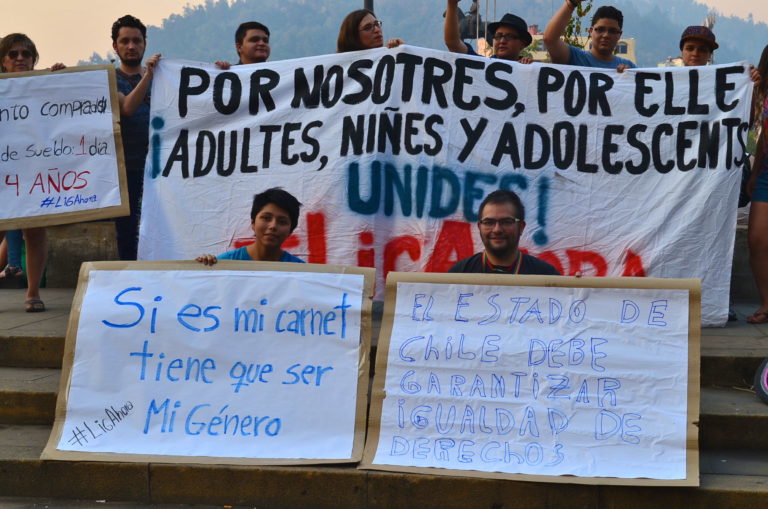 POR NOSOTRES, POR ELLE
¡ADULTES, NIÑES Y ADOLESCENTS
UNIDES!
#LIGAHORA
de sueldo: 1 día
4 AÑOS
#LIGAhora
Si es mi carnet
tiene que ser
Mi Género
#LIGAhora
EL ESTADO DE
CHILE DEBE
GARANTIZAR
IGUALDAD DE
DERECHOS